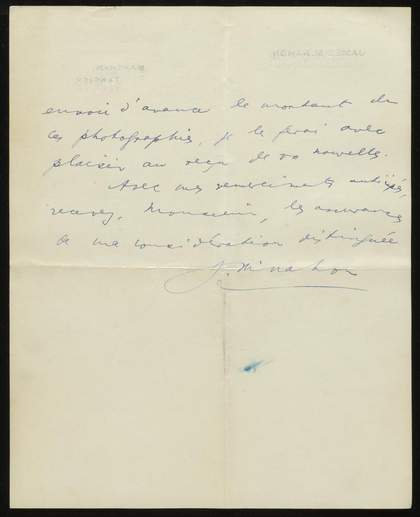 envoie d'avance le montant de
ces photographies, je le ferai avec
plaisir au reçu de vos nouvelles.
Avec mes remerciements anticipés,
recevez, Monsieur, les assurances
de ma considération distinguée